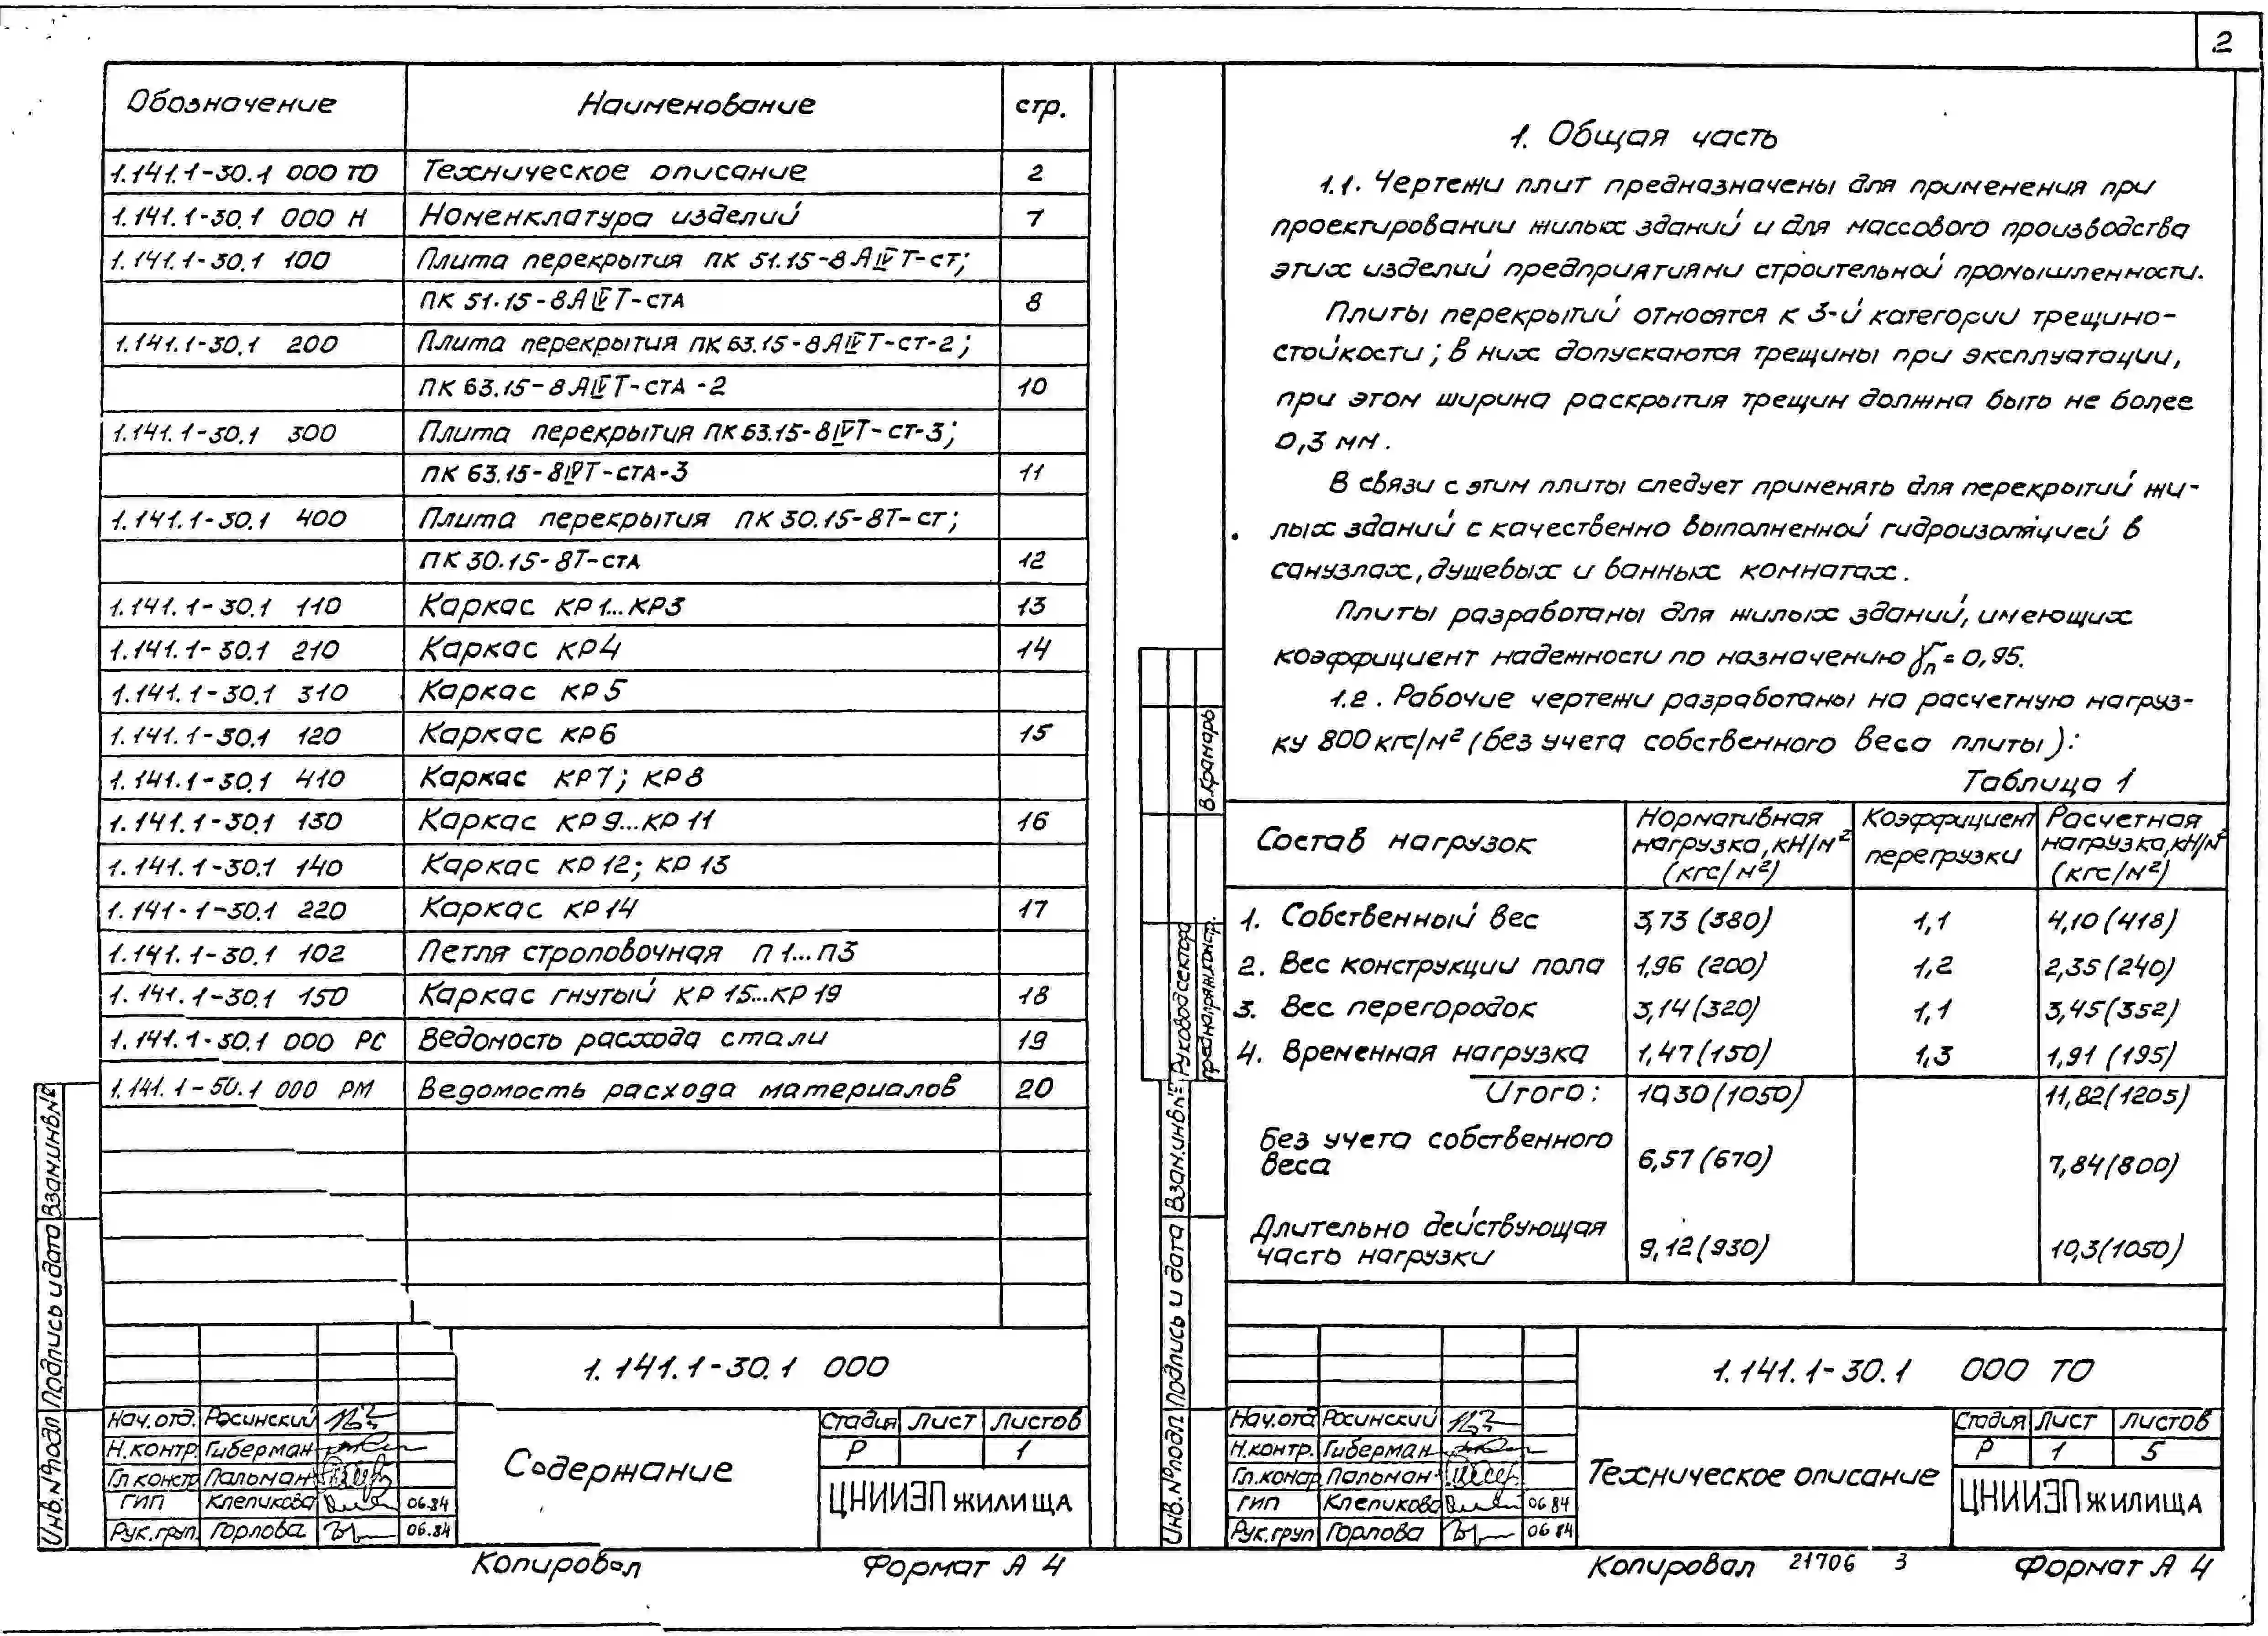 2
Обозначение Наименование стр.
1.141.1-30.1 000 ТО Техническое описание 2
1.141.1-30.1 000 Н Номенклатура изделий 7
1.141.1-30.1 100 Плита перекрытия ПК 51.15-8АIVТ-ст;
ПК 51.15-8АIVТ-стА 8
1.141.1-30.1 200 Плита перекрытия ПК 63.15-8АIVТ-ст-2;
ПК 63.15-8АIVТ-стА-2 10
1.141.1-30.1 300 Плита перекрытия ПК 63.15-8IVТ-ст-3;
ПК 63.15-8IVТ-стА-3 11
1.141.1-30.1 400 Плита перекрытия ПК 30.15-8Т-ст;
ПК 30.15-8Т-стА 12
1.141.1-30.1 110 Каркас КР1...КР3 13
1.141.1-30.1 210 Каркас КР4 14
1.141.1-30.1 310 Каркас КР5
1.141.1-30.1 120 Каркас КР6 15
1.141.1-30.1 410 Каркас КР7; КР8
1.141.1-30.1 130 Каркас КР9...КР11 16
1.141.1-30.1 140 Каркас КР12; КР13
1.141.1-30.1 220 Каркас КР14 17
1.141.1-30.1 102 Петля строповочная П1...П3
1.141.1-30.1 150 Каркас гнутый КР15...КР19 18
1.141.1-30.1 000 РС Ведомость расхода стали 19
1.141.1-50.1 000 РМ Ведомость расхода материалов 20
Взам.инв.№
Подпись и дата
Инв.№подл
1.141.1-30.1 000
Нач.отд. Росинский
Н.контр. Гиберман
Гл.констр Пальман
ГИП Клепикова 06.84
Рук.груп. Горлова 06.84
Содержание
Стадия Лист Листов
Р 1
ЦНИИЭП жилища
Копировал Формат А4
1. Общая часть
1.1. Чертежи плит предназначены для применения при
проектировании жилых зданий и для массового производства
этих изделий предприятиями строительной промышленности.
Плиты перекрытий относятся к 3-й категории трещино-
стойкости; в них допускаются трещины при эксплуатации,
при этом ширина раскрытия трещин должна быть не более
0,3 мм.
В связи с этим плиты следует применять для перекрытий жи-
лых зданий с качественно выполненной гидроизоляцией в
санузлах, душевых и ванных комнатах.
Плиты разработаны для жилых зданий, имеющих
коэффициент надежности по назначению γn = 0,95.
1.2. Рабочие чертежи разработаны на расчетную нагруз-
ку 800 кгс/м² (без учета собственного веса плиты):
Таблица 1
Состав нагрузок Нормативная нагрузка, кН/м² (кгс/м²) Коэффициент перегрузки Расчетная нагрузка, кН/м² (кгс/м²)
1. Собственный вес 3,73 (380) 1,1 4,10 (418)
2. Вес конструкции пола 1,96 (200) 1,2 2,35 (240)
3. Вес перегородок 3,14 (320) 1,1 3,45 (352)
4. Временная нагрузка 1,47 (150) 1,3 1,91 (195)
Итого: 10,30 (1050) 11,82 (1205)
Без учета собственного
веса 6,57 (670) 7,84 (800)
Длительно действующая
часть нагрузки 9,12 (930) 10,3 (1050)
В.Крамарь
Руковод.сектора
преднапряж.констр.
Взам.инв.№
Подпись и дата
Инв.№подл
1.141.1-30.1 000 ТО
Нач.отд Росинский
Н.контр. Гиберман
Гл.констр Пальман
ГИП Клепикова 06.84
Рук.груп Горлова 06.84
Техническое описание
Стадия Лист Листов
Р 1 5
ЦНИИЭП жилища
Копировал 21706 3 Формат А4